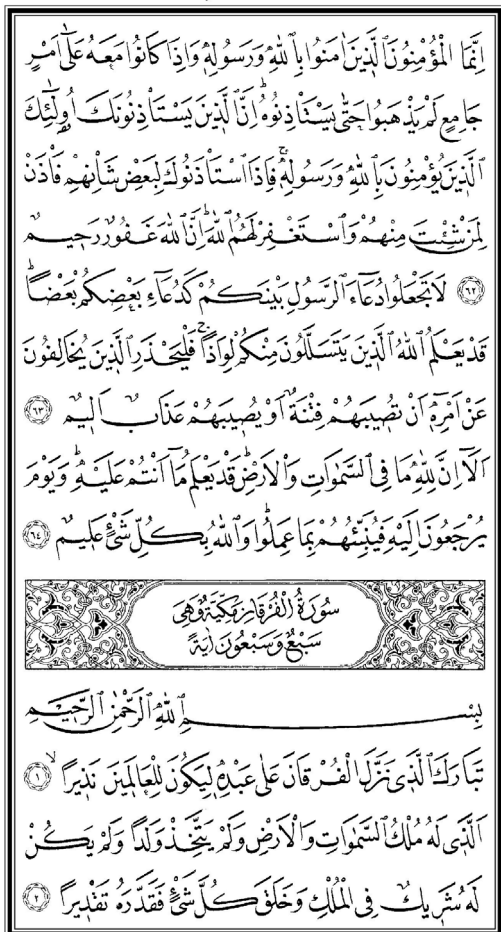 اِنَّمَا الْمُؤْمِنُونَ الَّذ۪ينَ اٰمَنُوا بِاللّٰهِ وَرَسُولِه۪ وَاِذَا كَانُوا مَعَهُ عَلٰٓى اَمْرٍ
جَامِعٍ لَمْ يَذْهَبُوا حَتّٰى يَسْتَأْذِنُوهُۜ اِنَّ الَّذ۪ينَ يَسْتَأْذِنُونَكَ اُو۬لٰٓئِكَ
الَّذ۪ينَ يُؤْمِنُونَ بِاللّٰهِ وَرَسُولِه۪ۚ فَاِذَا اسْتَأْذَنُوكَ لِبَعْضِ شَأْنِهِمْ فَأْذَنْ
لِمَنْ شِئْتَ مِنْهُمْ وَاسْتَغْفِرْ لَهُمُ اللّٰهَۜ اِنَّ اللّٰهَ غَفُورٌ رَح۪يمٌ
﴿٦٢﴾ لَا تَجْعَلُوا دُعَٓاءَ الرَّسُولِ بَيْنَكُمْ كَدُعَٓاءِ بَعْضِكُمْ بَعْضًاۜ
قَدْ يَعْلَمُ اللّٰهُ الَّذ۪ينَ يَتَسَلَّلُونَ مِنْكُمْ لِوَاذًاۚ فَلْيَحْذَرِ الَّذ۪ينَ يُخَالِفُونَ
عَنْ اَمْرِه۪ٓ اَنْ تُص۪يبَهُمْ فِتْنَةٌ اَوْ يُص۪يبَهُمْ عَذَابٌ اَل۪يمٌ ﴿٦٣﴾
اَلَٓا اِنَّ لِلّٰهِ مَا فِي السَّمٰوَاتِ وَالْاَرْضِۜ قَدْ يَعْلَمُ مَٓا اَنْتُمْ عَلَيْهِۜ وَيَوْمَ
يُرْجَعُونَ اِلَيْهِ فَيُنَبِّئُهُمْ بِمَا عَمِلُواۜ وَاللّٰهُ بِكُلِّ شَيْءٍ عَل۪يمٌ ﴿٦٤﴾
سُورَةُ الْفُرْقَانِ مَكِّيَّةٌ وَهِيَ
سَبْعٌ وَسَبْعُونَ اٰيَةً
بِسْمِ اللّٰهِ الرَّحْمٰنِ الرَّح۪يمِ
تَبَارَكَ الَّذ۪ي نَزَّلَ الْفُرْقَانَ عَلٰى عَبْدِه۪ لِيَكُونَ لِلْعَالَم۪ينَ نَذ۪يرًاۙ ﴿١﴾
اَلَّذ۪ي لَهُ مُلْكُ السَّمٰوَاتِ وَالْاَرْضِ وَلَمْ يَتَّخِذْ وَلَدًا وَلَمْ يَكُنْ
لَهُ شَر۪يكٌ فِي الْمُلْكِ وَخَلَقَ كُلَّ شَيْءٍ فَقَدَّرَهُ تَقْد۪يرًا ﴿٢﴾